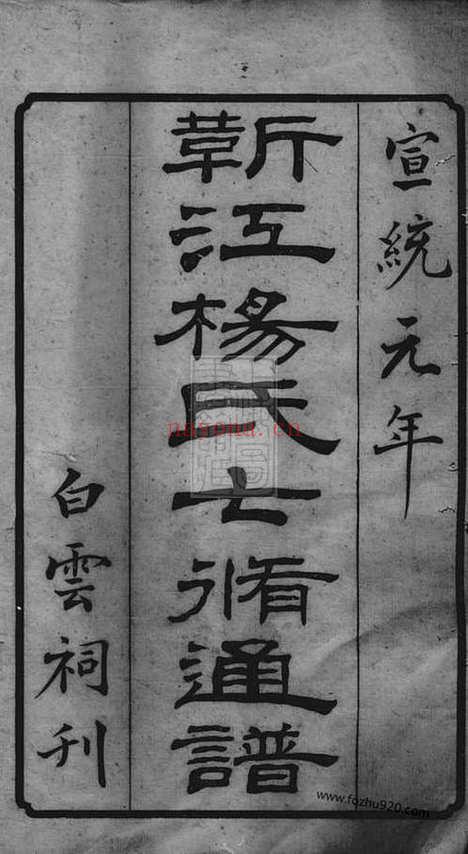 宣統元年
靳江楊氏七脩通譜
白雲祠刊
nasona.cn
www.fozhu920.com